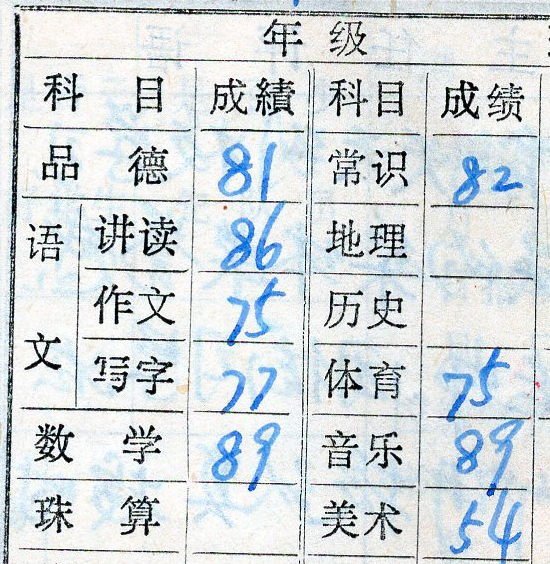 年级
科目 成績 科目 成绩
品德 81 常识 82
语文 讲读 86 地理
作文 75 历史
写字 77 体育 75
数学 89 音乐 89
珠算 美术 54